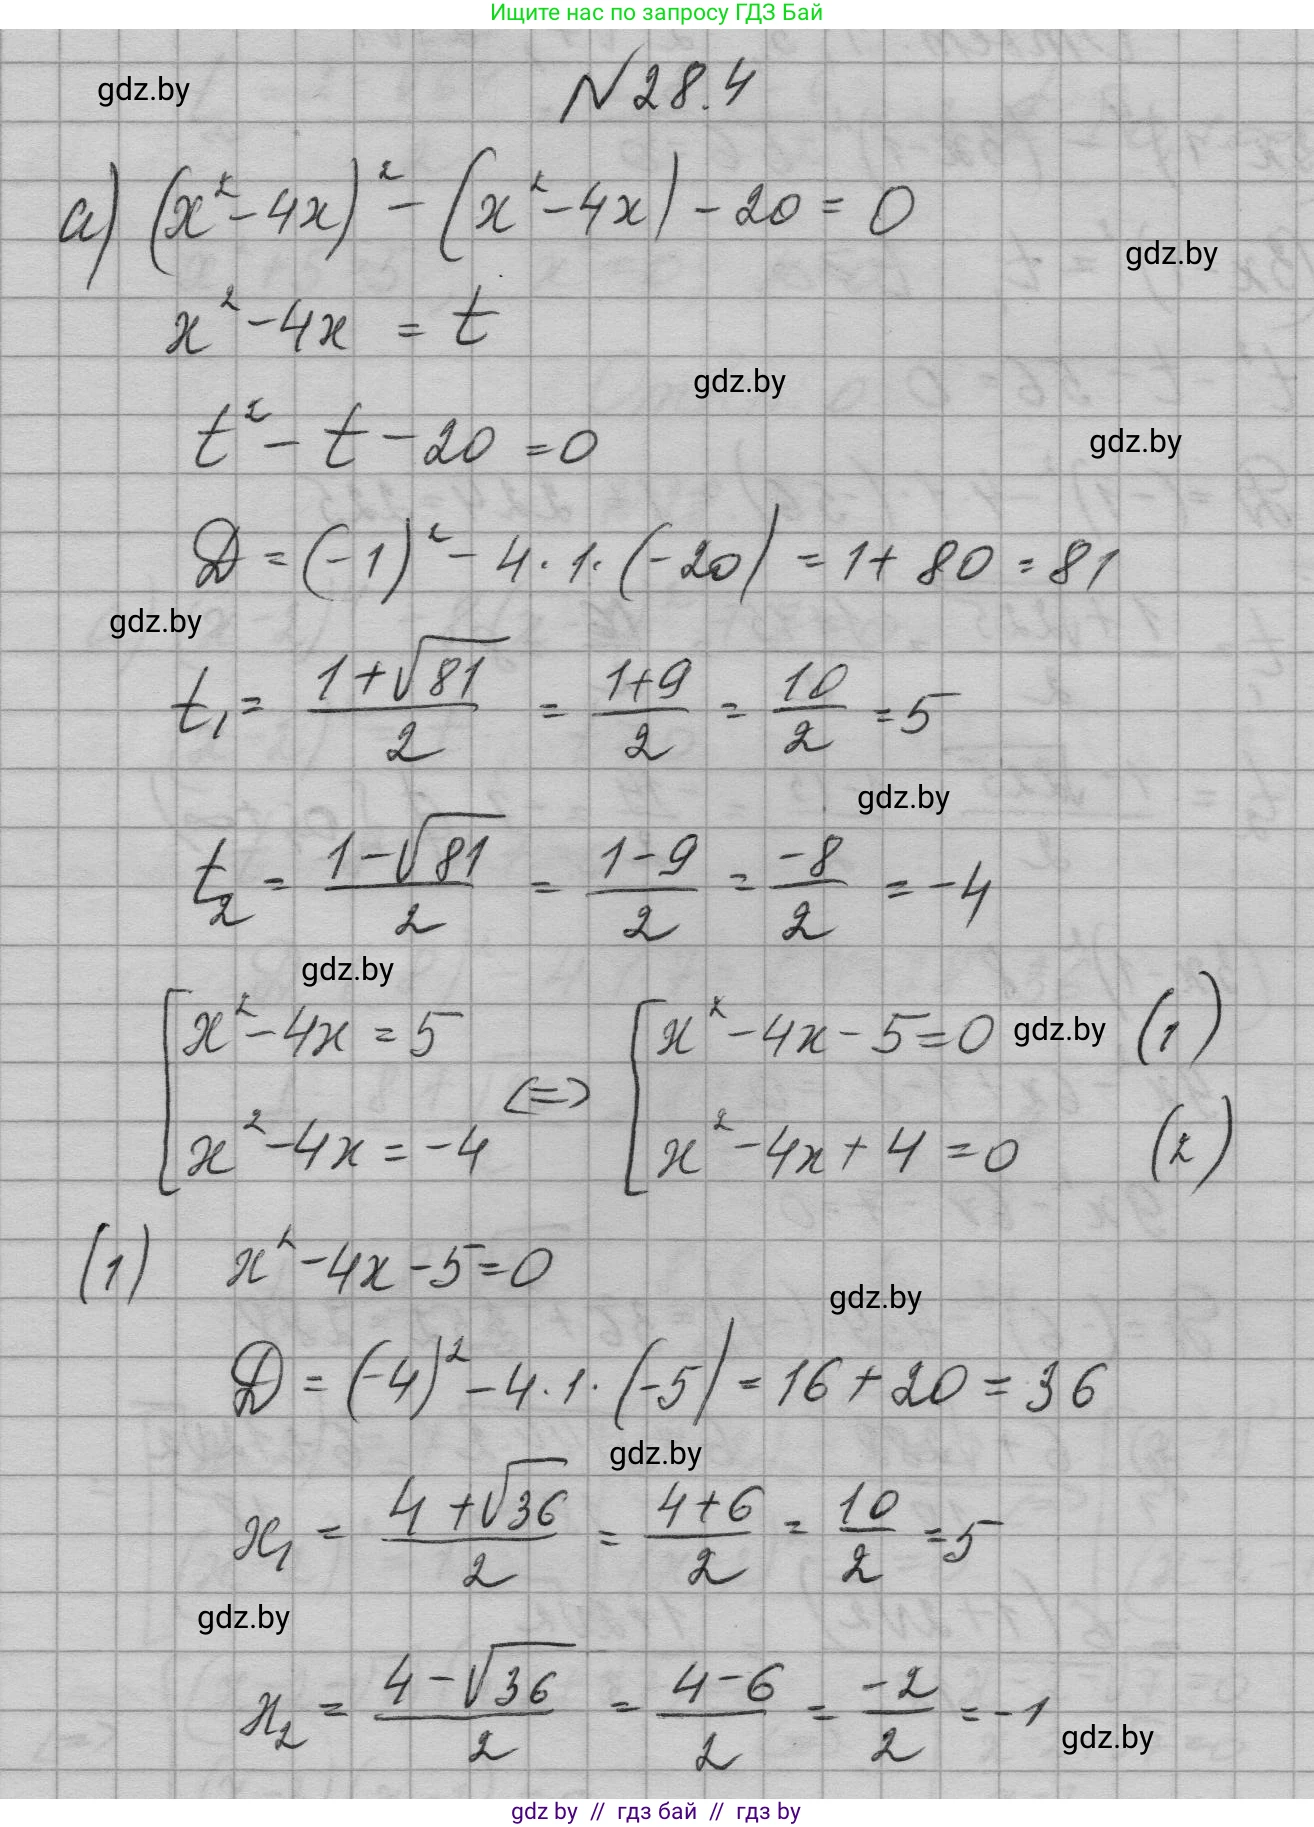 Ищите нас по запросу ГДЗ Бай
№ 28.4
gdz.by
а) (x² - 4x)² - (x² - 4x) - 20 = 0
gdz.by
x² - 4x = t
gdz.by
t² - t - 20 = 0
gdz.by
D = (-1)² - 4 · 1 · (-20) = 1 + 80 = 81
gdz.by
t₁ = (1 + √81)/2 = (1 + 9)/2 = 10/2 = 5
gdz.by
t₂ = (1 - √81)/2 = (1 - 9)/2 = -8/2 = -4
gdz.by
[ x² - 4x = 5 <=> [ x² - 4x - 5 = 0 gdz.by (1)
x² - 4x = -4 x² - 4x + 4 = 0 (2)
(1) x² - 4x - 5 = 0
gdz.by
D = (-4)² - 4 · 1 · (-5) = 16 + 20 = 36
gdz.by
x₁ = (4 + √36)/2 = (4 + 6)/2 = 10/2 = 5
gdz.by
x₂ = (4 - √36)/2 = (4 - 6)/2 = -2/2 = -1
gdz.by
gdz by // гдз бай // гдз by